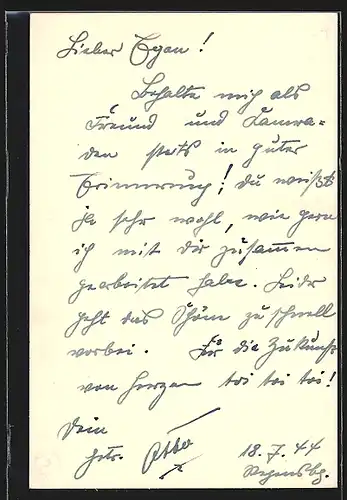 Lieber Egon!
Behalte mich als
Freund und Kamera=
den stets in guter
Erinnerung! Du weißt
ja sehr wohl, wie gern
ich mit dir zusammen
gearbeitet habe. Leider
geht das Schöne zu schnell
vorbei. Für die Zukunft
von Herzen toi toi toi!
Dein
Otto
18.7.44
Regensbg.